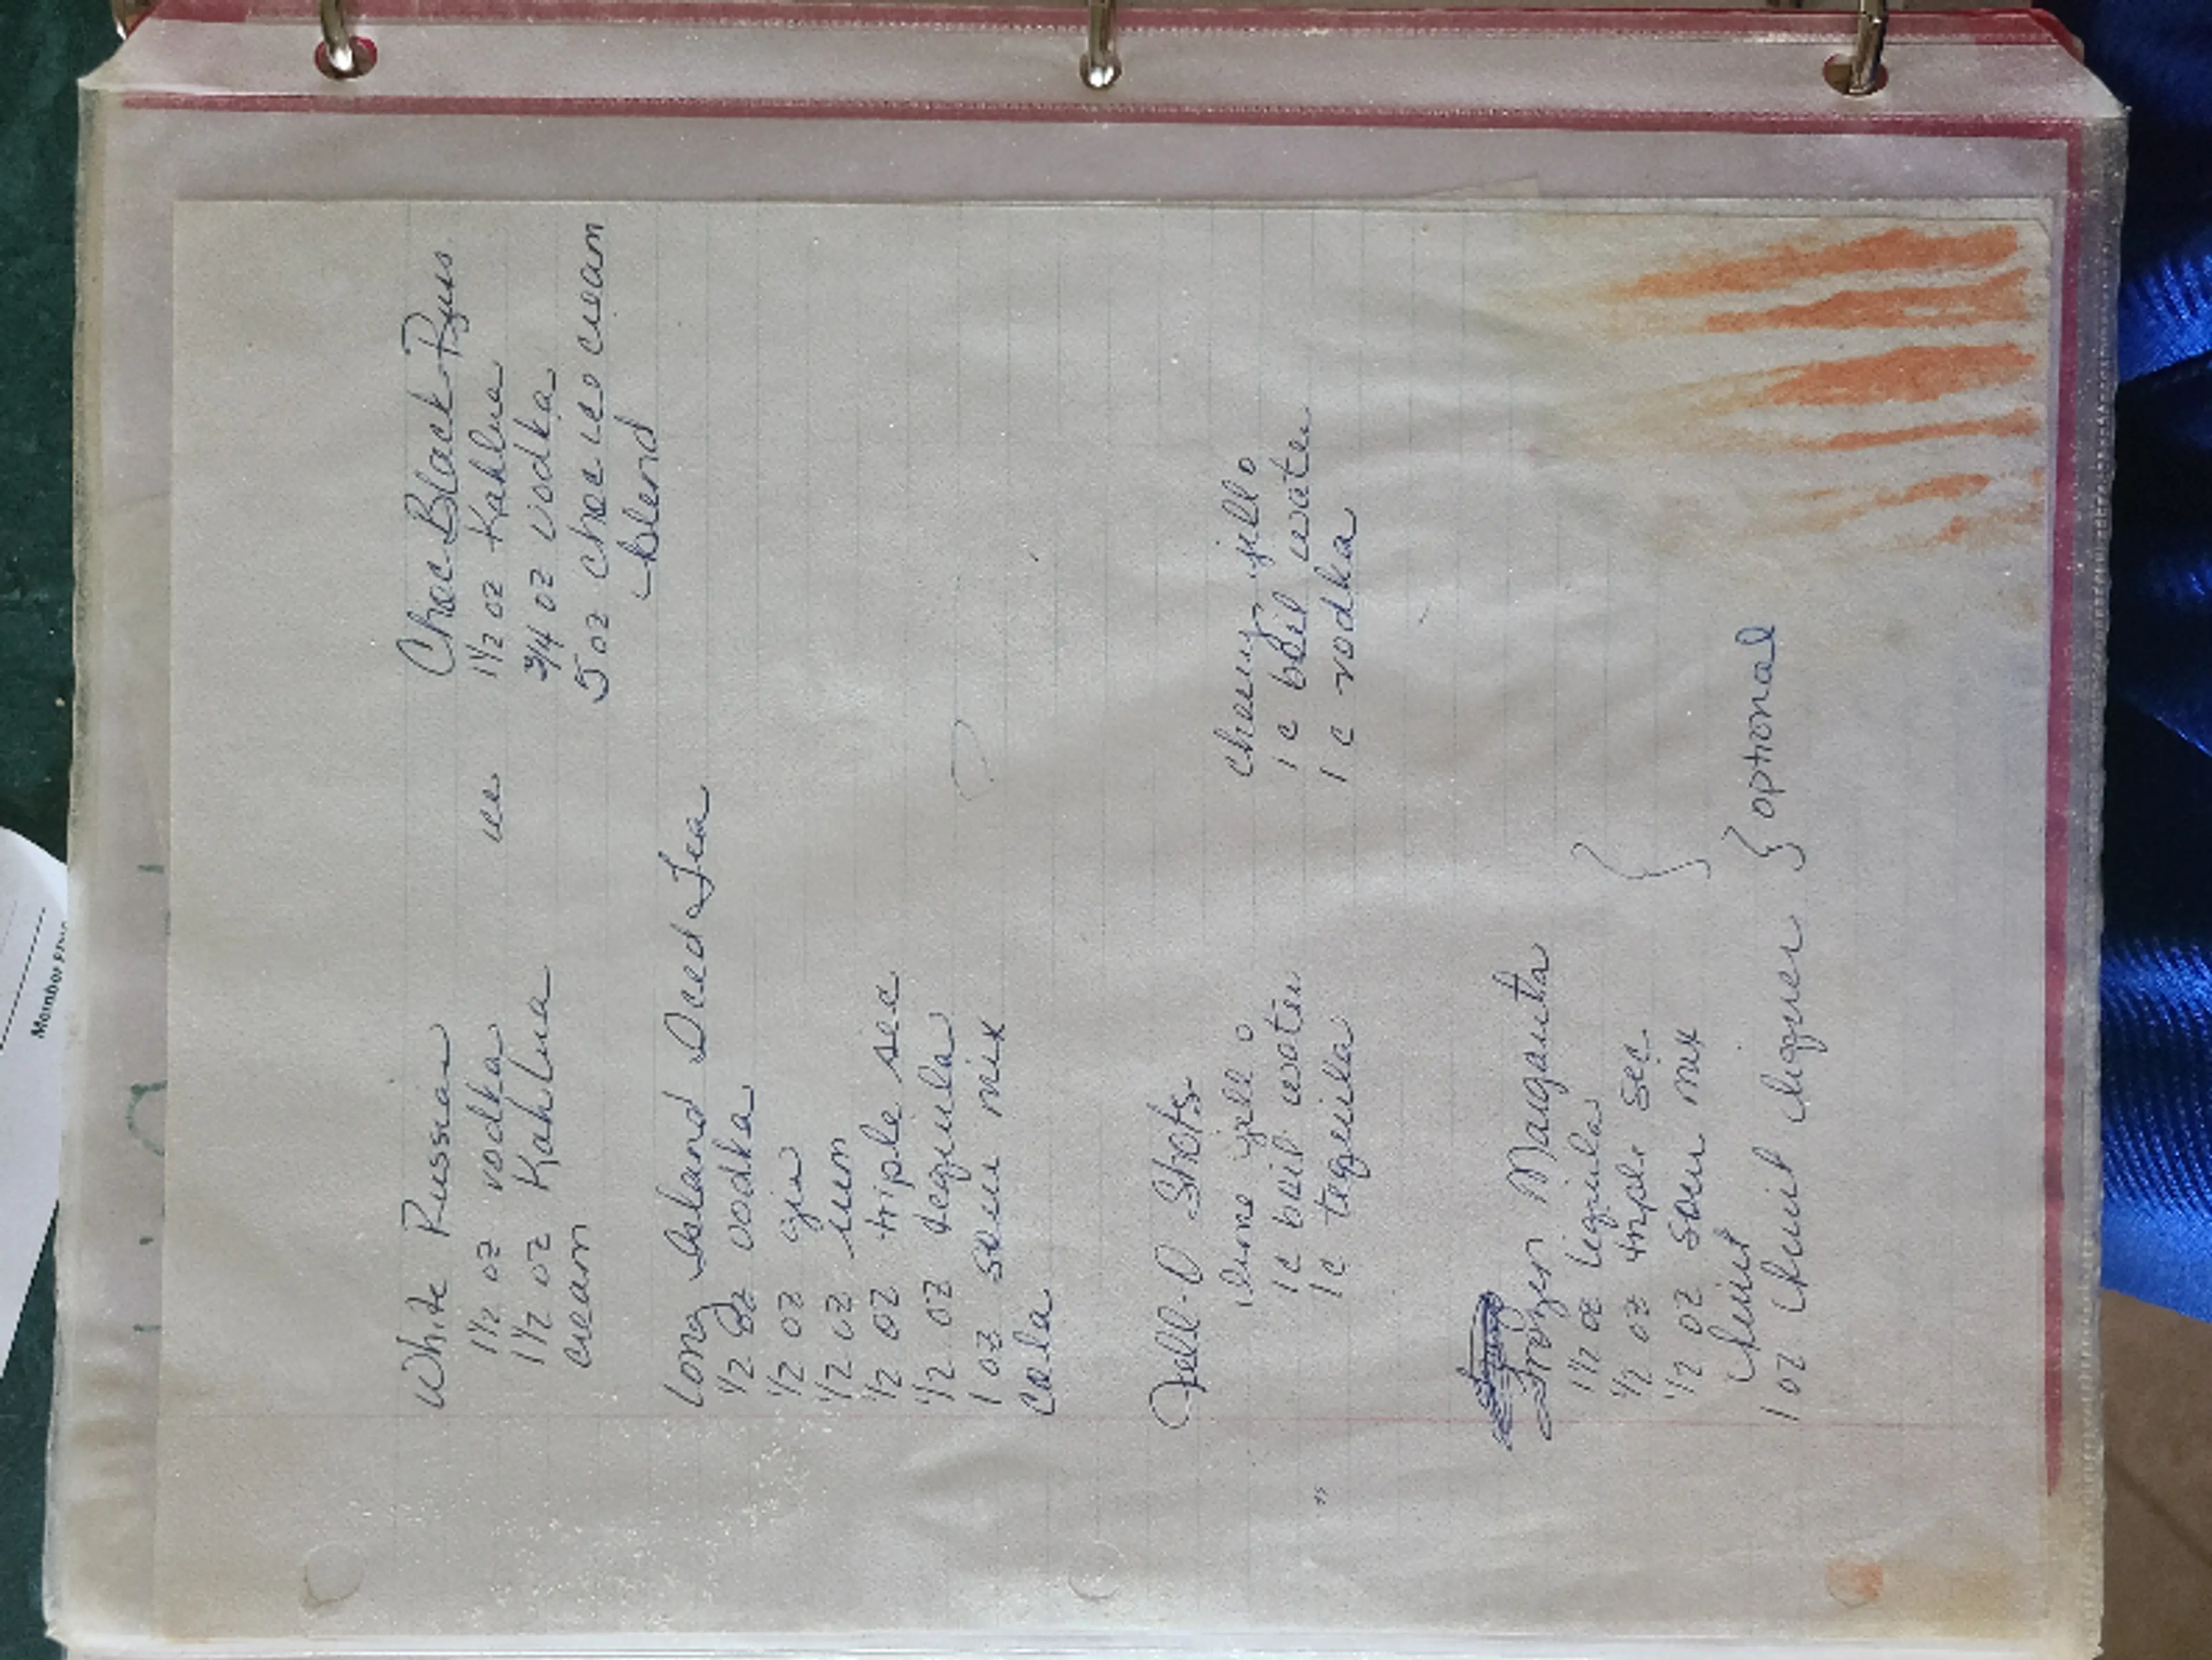 White Russian
1 1/2 oz vodka ice
1 1/2 oz Kahlua
cream
Choc Black Russ
1 1/2 oz Kahlua
3/4 oz vodka
5 oz choc ice cream
blend
Long Island Iced Tea
1/2 oz vodka
1/2 oz gin
1/2 oz rum
1/2 oz triple sec
1/2 oz tequila
1 oz sour mix
cola
Jell-O Shots
lime jello
1 c boil water
1 c tequila
cherry jello
1 c boil water
1 c vodka
Frozen Margarita
1 1/2 oz tequila
1/2 oz triple sec
1/2 oz sour mix
fruit
1 oz fruit liquer } optional
Member